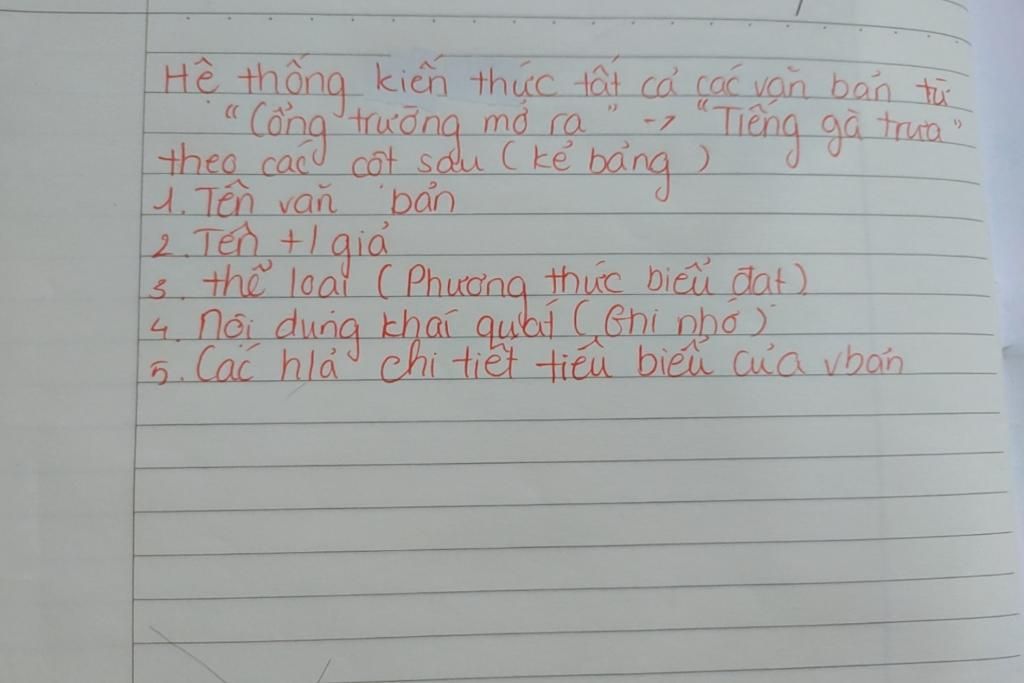 Hệ thống kiến thức tất cả các văn bản từ
"Cổng trường mở ra" -> "Tiếng gà trưa"
theo các cột sau (kẻ bảng)
1. Tên văn bản
2. Tên t/giả
3. thể loại (Phương thức biểu đạt)
4. Nội dung khái quát (Ghi nhớ)
5. Các h/ả chi tiết tiêu biểu của vbản